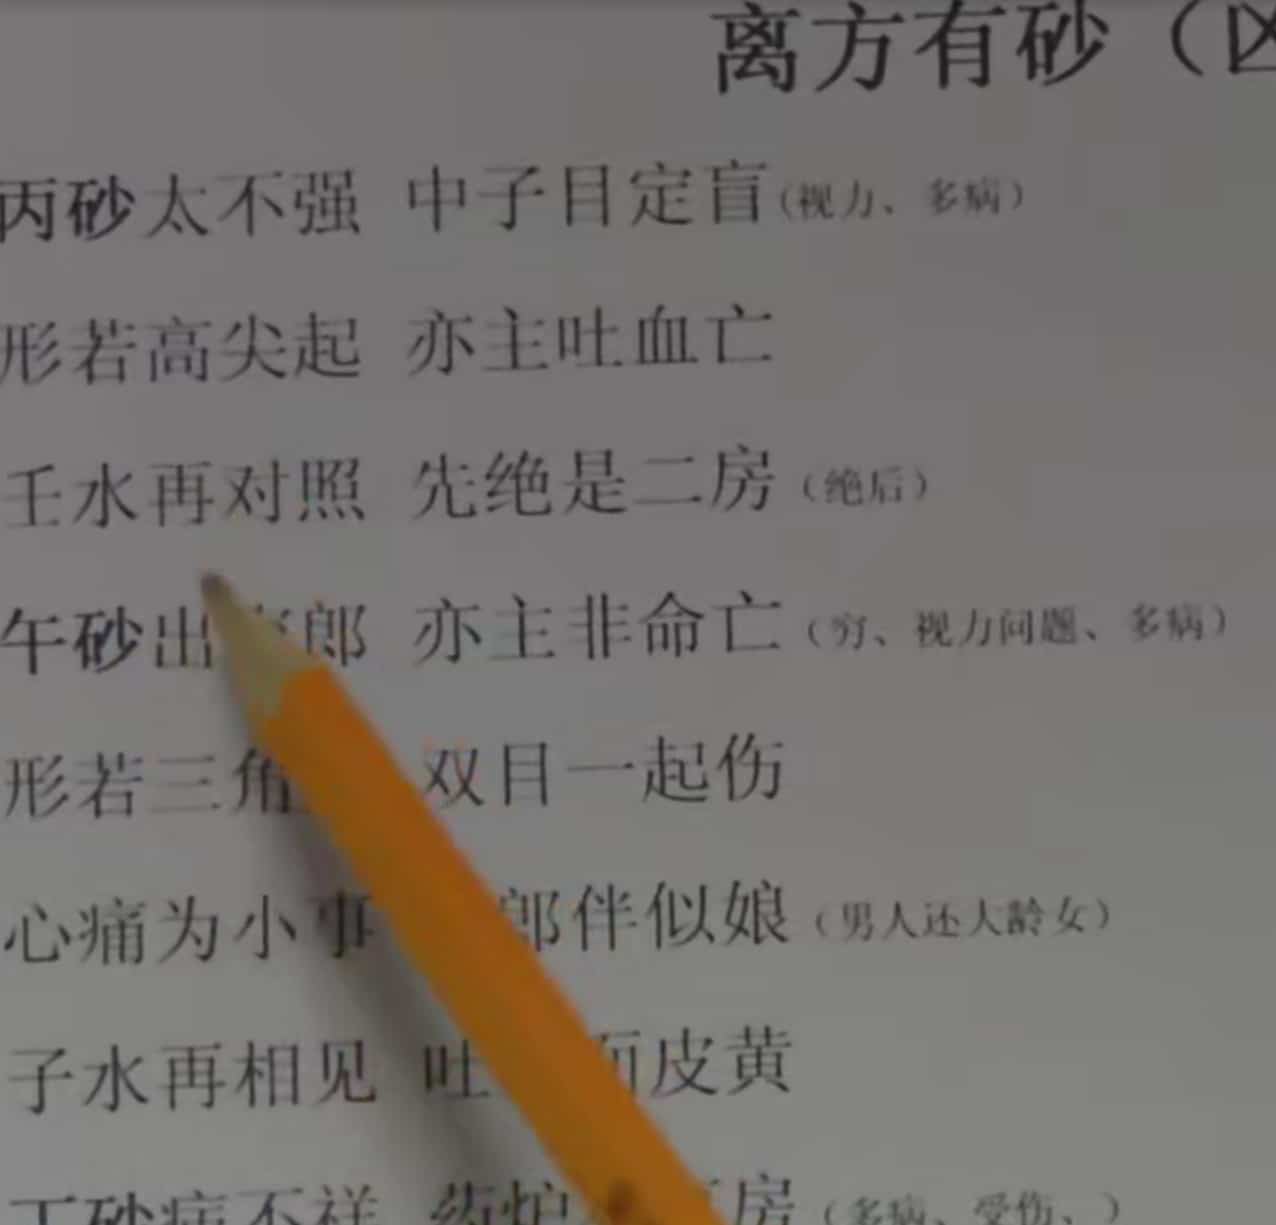 离方有砂（凶
丙砂太不强 中子目定盲(视力、多病)
形若高尖起 亦主吐血亡
壬水再对照 先绝是二房（绝后）
午砂出 郎 亦主非命亡（穷、视力问题、多病）
形若三角 双目一起伤
心痛为小事 郎伴似娘（男人还大龄女）
子水再相见 吐 面皮黄
丁砂病不祥 药炉 房（多病、受伤、）